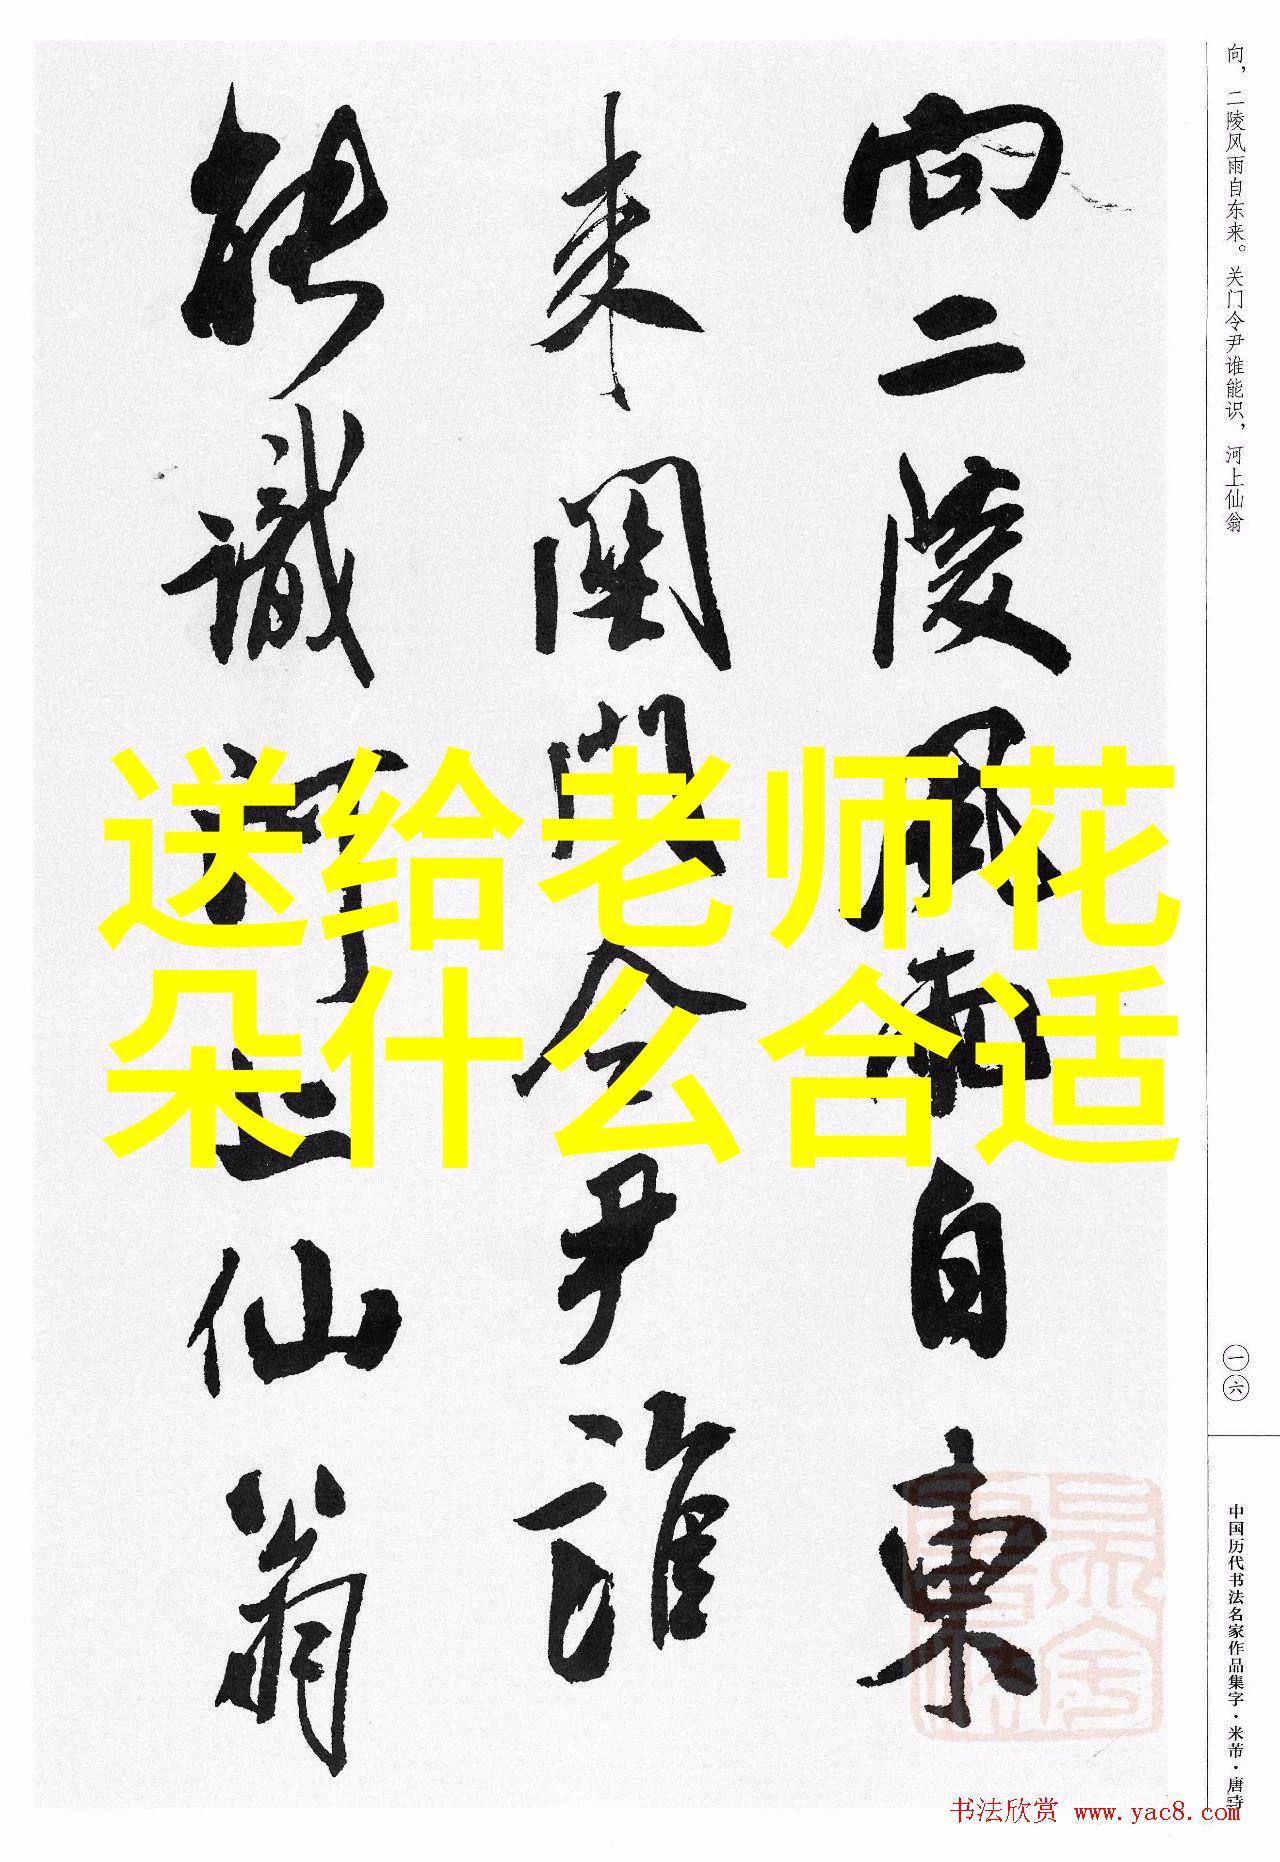 向二陵風雨自東
来關門令尹誰
能識河上仙翁
送给老师花
朵什么合适
向，二陵风雨自东来。关门令尹谁能识，河上仙翁
一六
中国历代书法名家作品集字·米芾·唐诗
书法欣赏 www.yac8.com